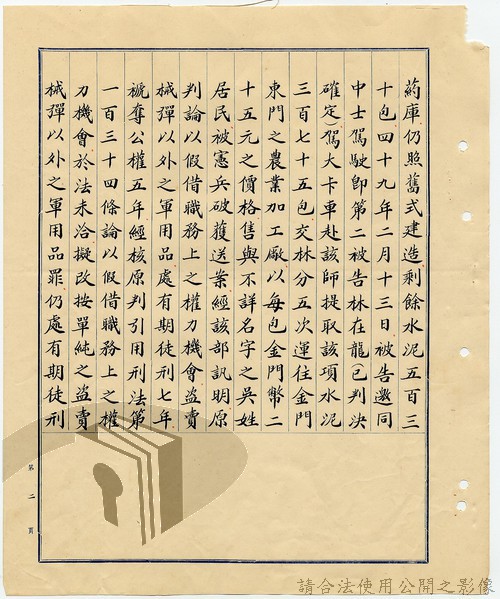 葯庫仍照舊式建造剩餘水泥五百三
十包四十九年二月十三日被告邀同
中士駕駛即第二被告林在龍已判決
確定駕大卡車赴該師提取該項水泥
三百七十五包交林分五次運住金門
東門之農業加工廠以每包金門幣二
十五元之價格售與不詳名字之吳姓
居民被憲兵破獲送案經該部訊明原
判論以假借職務上之權力機會盜賣
械彈以外之軍用品處有期徒刑七年
褫奪公權五年經核原判引用刑法第
一百三十四條論以假借職務上之權
力機會於法未洽擬改按單純之盜賣
械彈以外之軍用品罪仍處有期徒刑
第二頁
請合法使用公開之影像